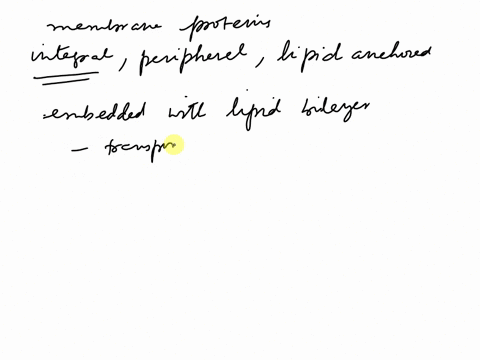 membrane proteins
integral, peripherel, lipid anchored
embedded with lipid bilayer
- transpor